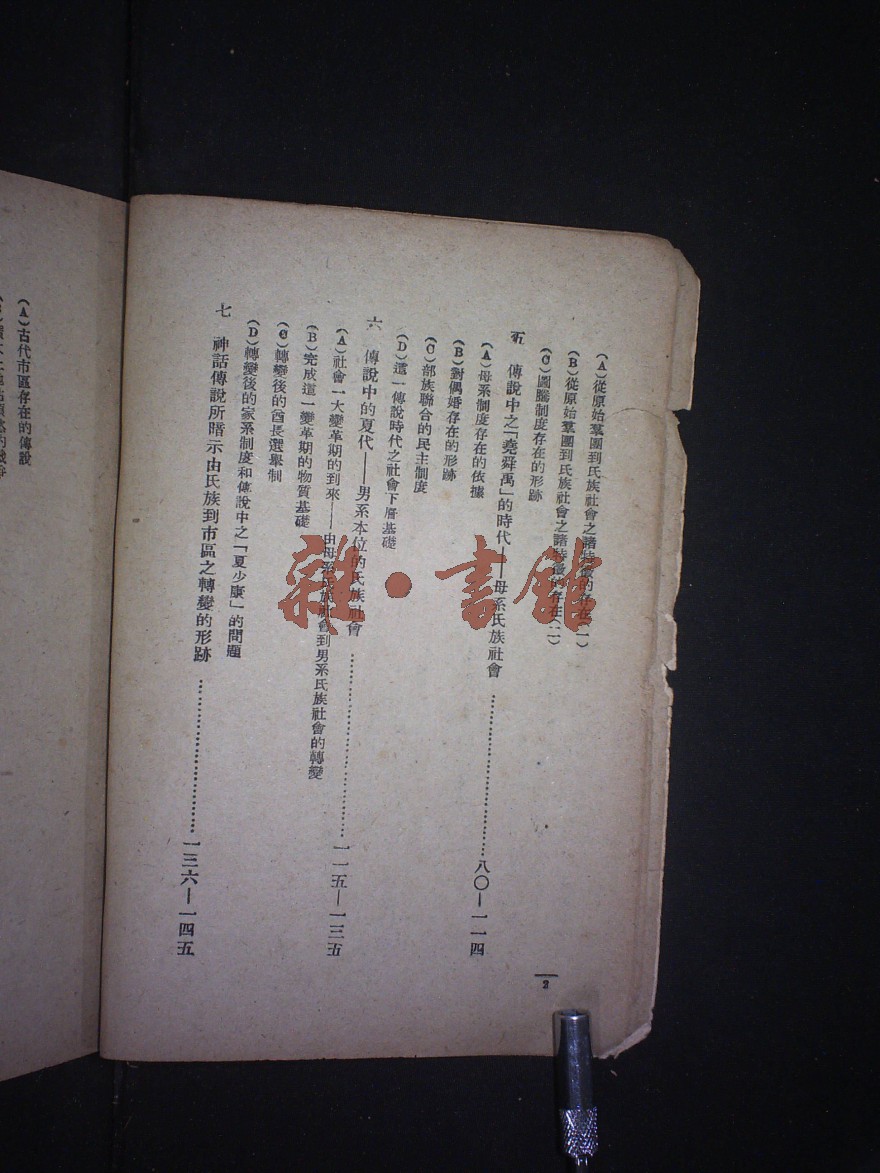 (A)從原始羣團到氏族社會之諸特徵的存在(一)
(B)從原始羣團到氏族社會之諸特徵的存在(二)
(C)圖騰制度存在的形跡
五 傳說中之「堯舜禹」的時代——母系氏族社會………………八〇—一一四
(A)母系制度存在的依據
(B)對偶婚存在的形跡
(C)部族聯合的民主制度
(D)這一傳說時代之社會下層基礎
六 傳說中的夏代——男系本位的氏族社會………………一一五—一三五
(A)社會一大變革期的到來——由母系氏族社會到男系氏族社會的轉變
(B)完成這一變革期的物質基礎
(C)轉變後的酋長選舉制
(D)轉變後的家系制度和傳說中之「夏少康」的問題
七 神話傳說所暗示由氏族到市區之轉變的形跡………………一三六—一四五
2
(A)古代市區存在的傳說
雜·書館